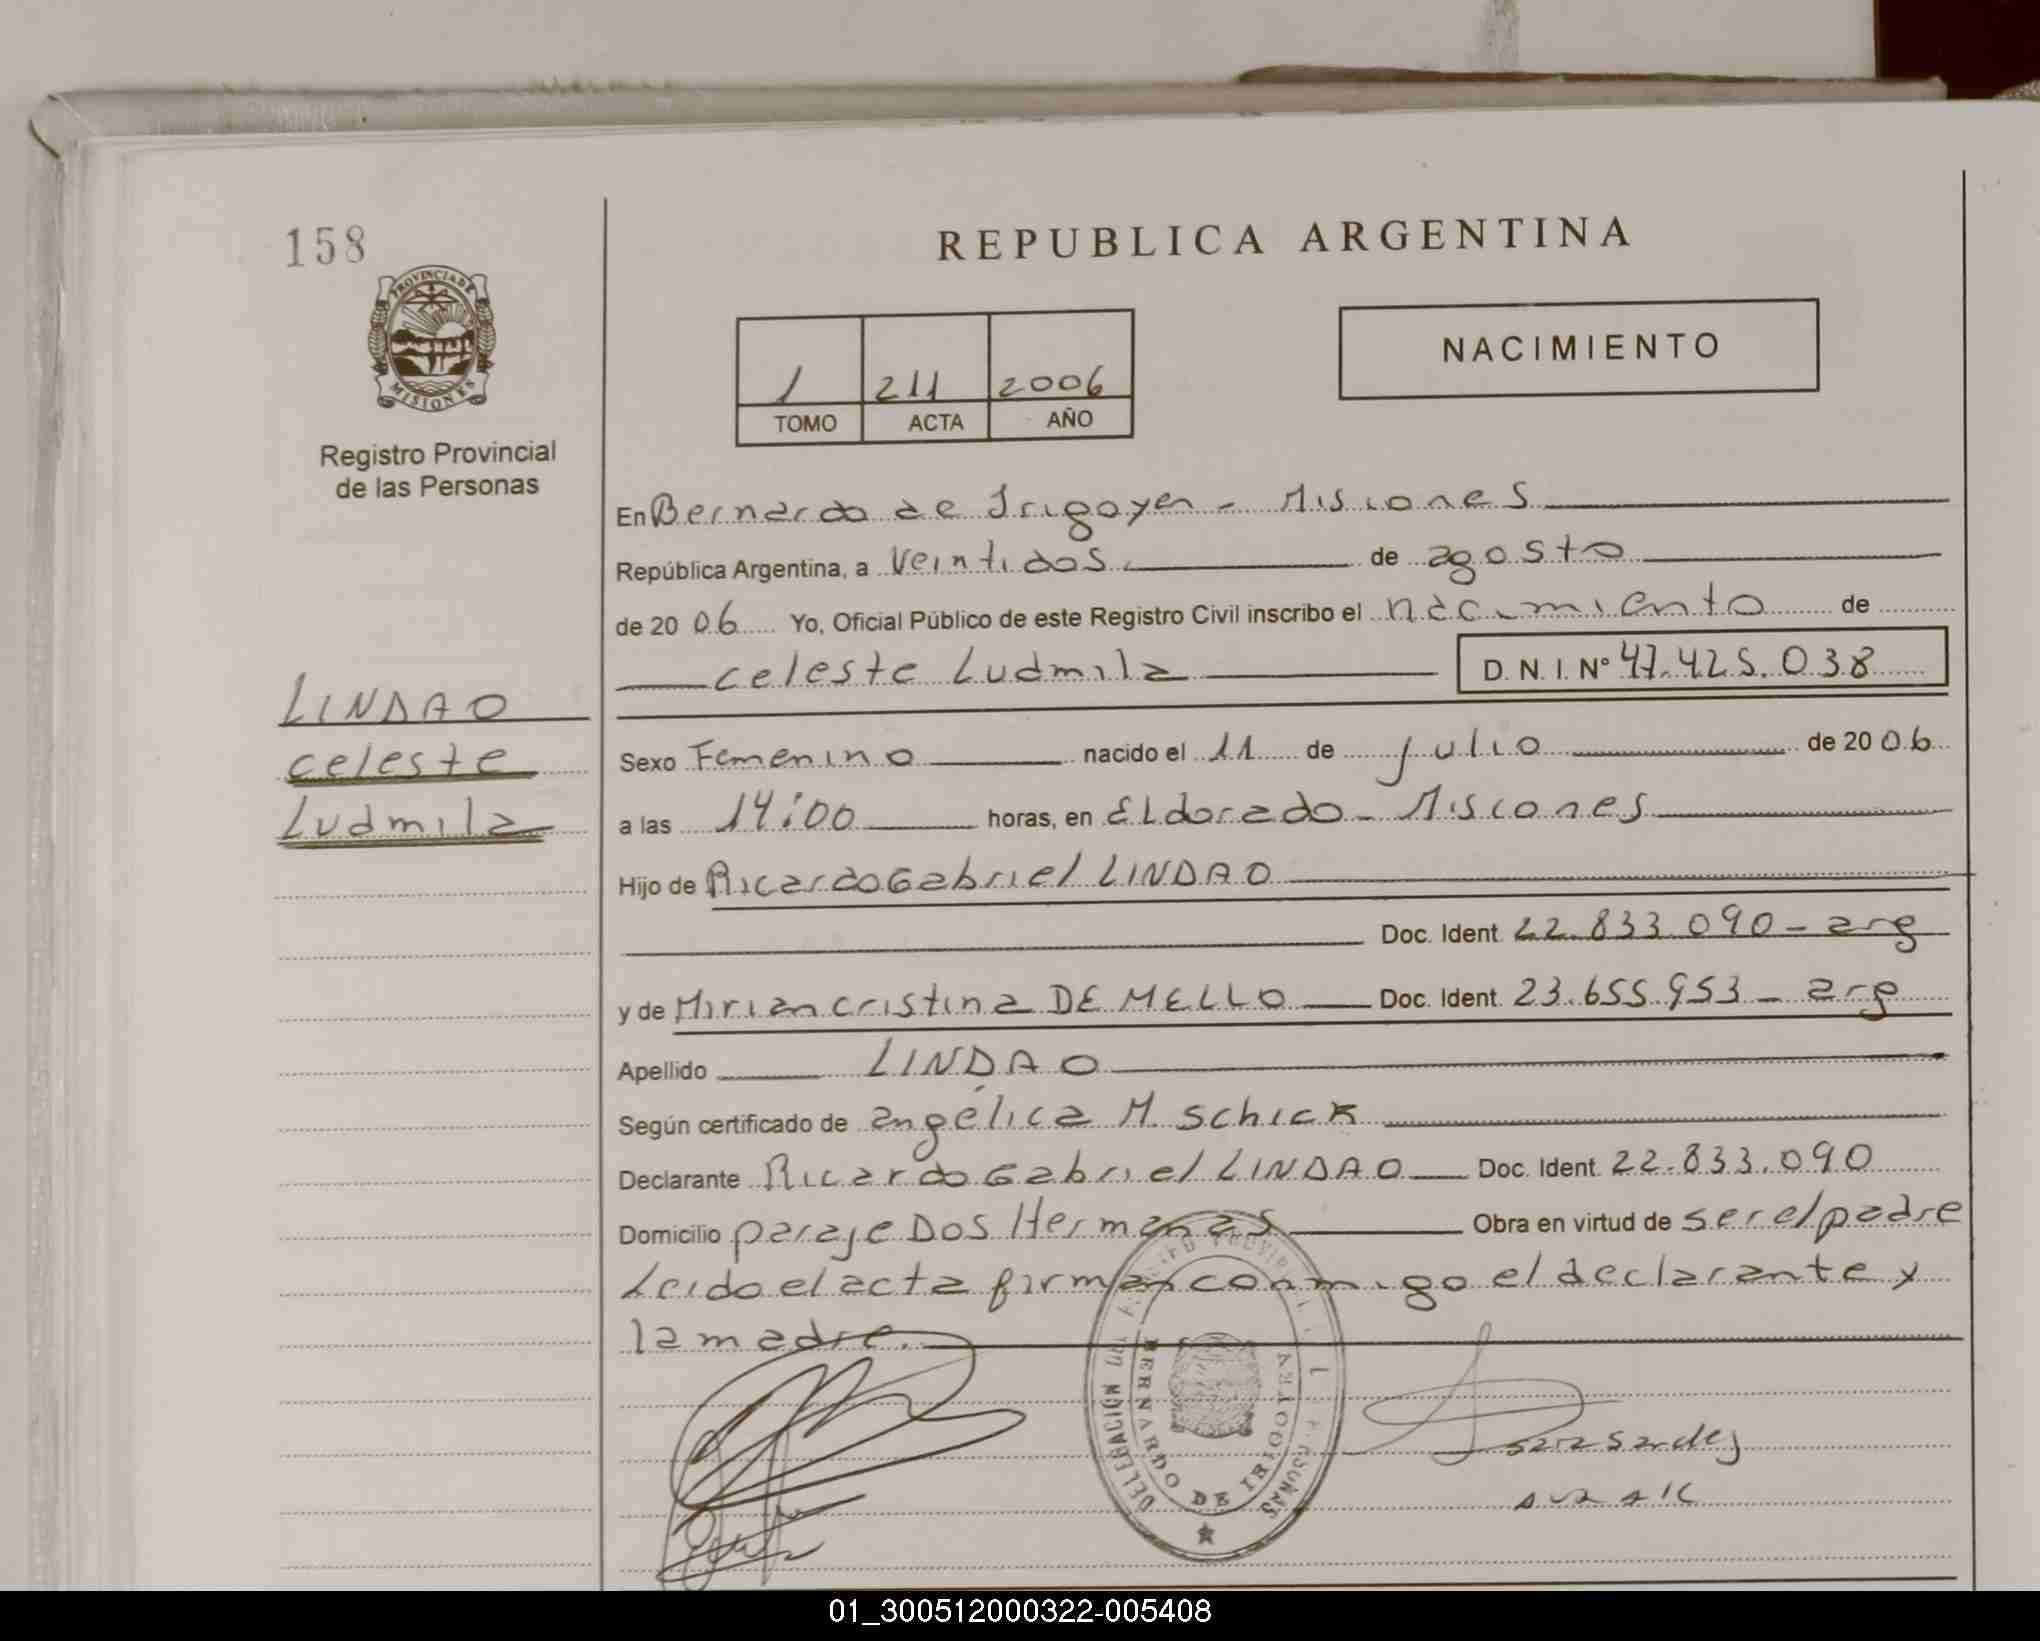 158
PROVINCIA DE
MISIONES
Registro Provincial
de las Personas
LINDAO
celeste
Ludmila
REPUBLICA ARGENTINA
1 211 2006
TOMO ACTA AÑO
NACIMIENTO
En Bernardo de Irigoyen - Misiones
República Argentina, a veintidos de agosto
de 2006 Yo, Oficial Público de este Registro Civil inscribo el nacimiento de
celeste Ludmila D. N. I. N° 47.425.038
Sexo Femenino nacido el 11 de julio de 2006
a las 14:00 horas, en Eldorado - Misiones
Hijo de Ricardo Gabriel LINDAO
Doc. Ident. 22.833.090 - arg
y de Mirian cristina DE MELLO Doc. Ident. 23.655.953 - arg
Apellido LINDAO
Según certificado de angélica M. Schick
Declarante Ricardo Gabriel LINDAO Doc. Ident. 22.833.090
Domicilio paraje Dos Hermanas Obra en virtud de ser el padre
Leido el acta firman conmigo el declarante y
la madre.
DELEGACION DEL REGISTRO PROVINCIAL DE LAS PERSONAS
BERNARDO DE IRIGOYEN
01_300512000322-005408